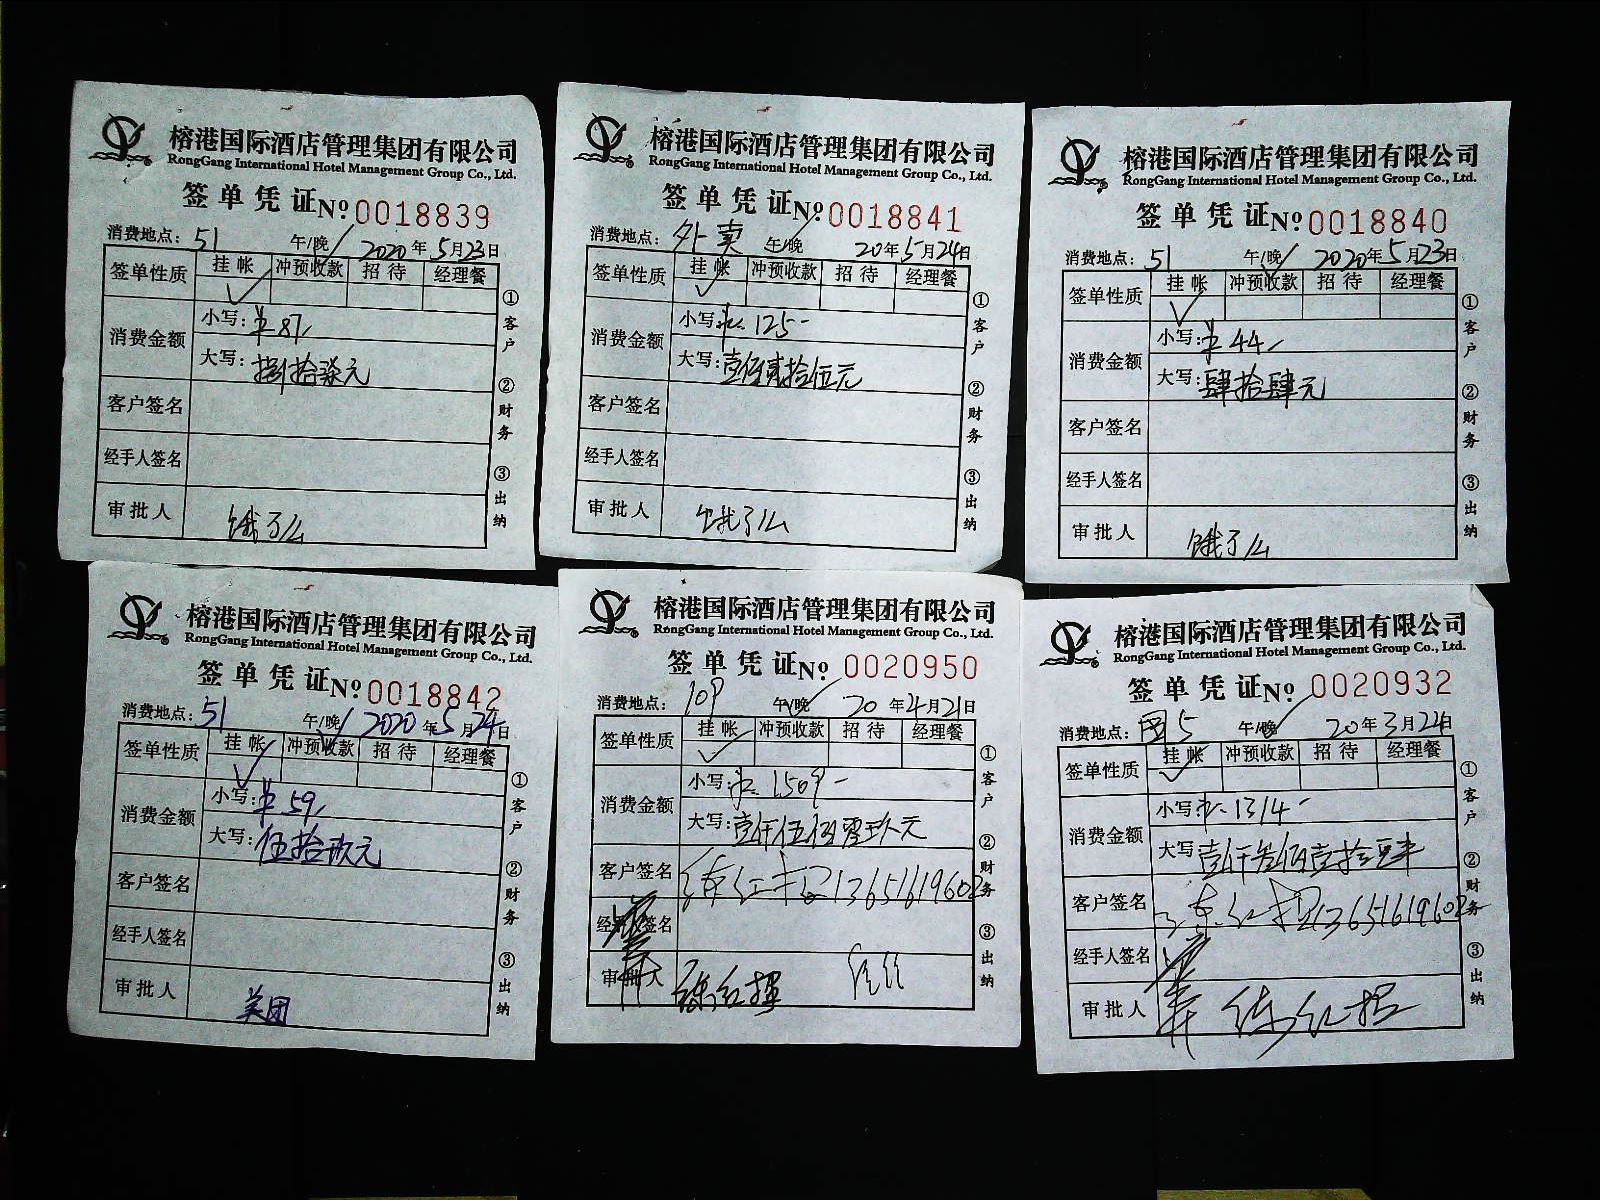 榕港国际酒店管理集团有限公司
RongGang International Hotel Management Group Co., Ltd.
签单凭证 №0018839
消费地点：51 午/晚 2020年5月23日
签单性质 挂帐 冲预收款 招待 经理餐
消费金额 小写：87
大写：捌拾柒元
客户签名
经手人签名
审批人 饿了么
①客户 ②财务 ③出纳
榕港国际酒店管理集团有限公司
RongGang International Hotel Management Group Co., Ltd.
签单凭证 №0018841
消费地点：外卖 午/晚 20年5月24日
签单性质 挂帐 冲预收款 招待 经理餐
消费金额 小写：125-
大写：壹佰贰拾伍元
客户签名
经手人签名
审批人 饿了么
①客户 ②财务 ③出纳
榕港国际酒店管理集团有限公司
RongGang International Hotel Management Group Co., Ltd.
签单凭证 №0018840
消费地点：51 午/晚 2020年5月23日
签单性质 挂帐 冲预收款 招待 经理餐
消费金额 小写：44
大写：肆拾肆元
客户签名
经手人签名
审批人 饿了么
①客户 ②财务 ③出纳
榕港国际酒店管理集团有限公司
RongGang International Hotel Management Group Co., Ltd.
签单凭证 №0018842
消费地点：51 午/晚 2020年5月24日
签单性质 挂帐 冲预收款 招待 经理餐
消费金额 小写：59
大写：伍拾玖元
客户签名
经手人签名
审批人 美团
①客户 ②财务 ③出纳
榕港国际酒店管理集团有限公司
RongGang International Hotel Management Group Co., Ltd.
签单凭证 №0020950
消费地点：109 午/晚 20年4月21日
签单性质 挂帐 冲预收款 招待 经理餐
消费金额 小写：1509-
大写：壹仟伍佰零玖元
客户签名 13651619602
经手人签名
审批人
①客户 ②财务 ③出纳
榕港国际酒店管理集团有限公司
RongGang International Hotel Management Group Co., Ltd.
签单凭证 №0020932
消费地点：5 午/晚 20年3月24日
签单性质 挂帐 冲预收款 招待 经理餐
消费金额 小写：1314-
大写 壹仟叁佰壹拾肆
客户签名 13651619602
经手人签名
审批人
①客户 ②财务 ③出纳